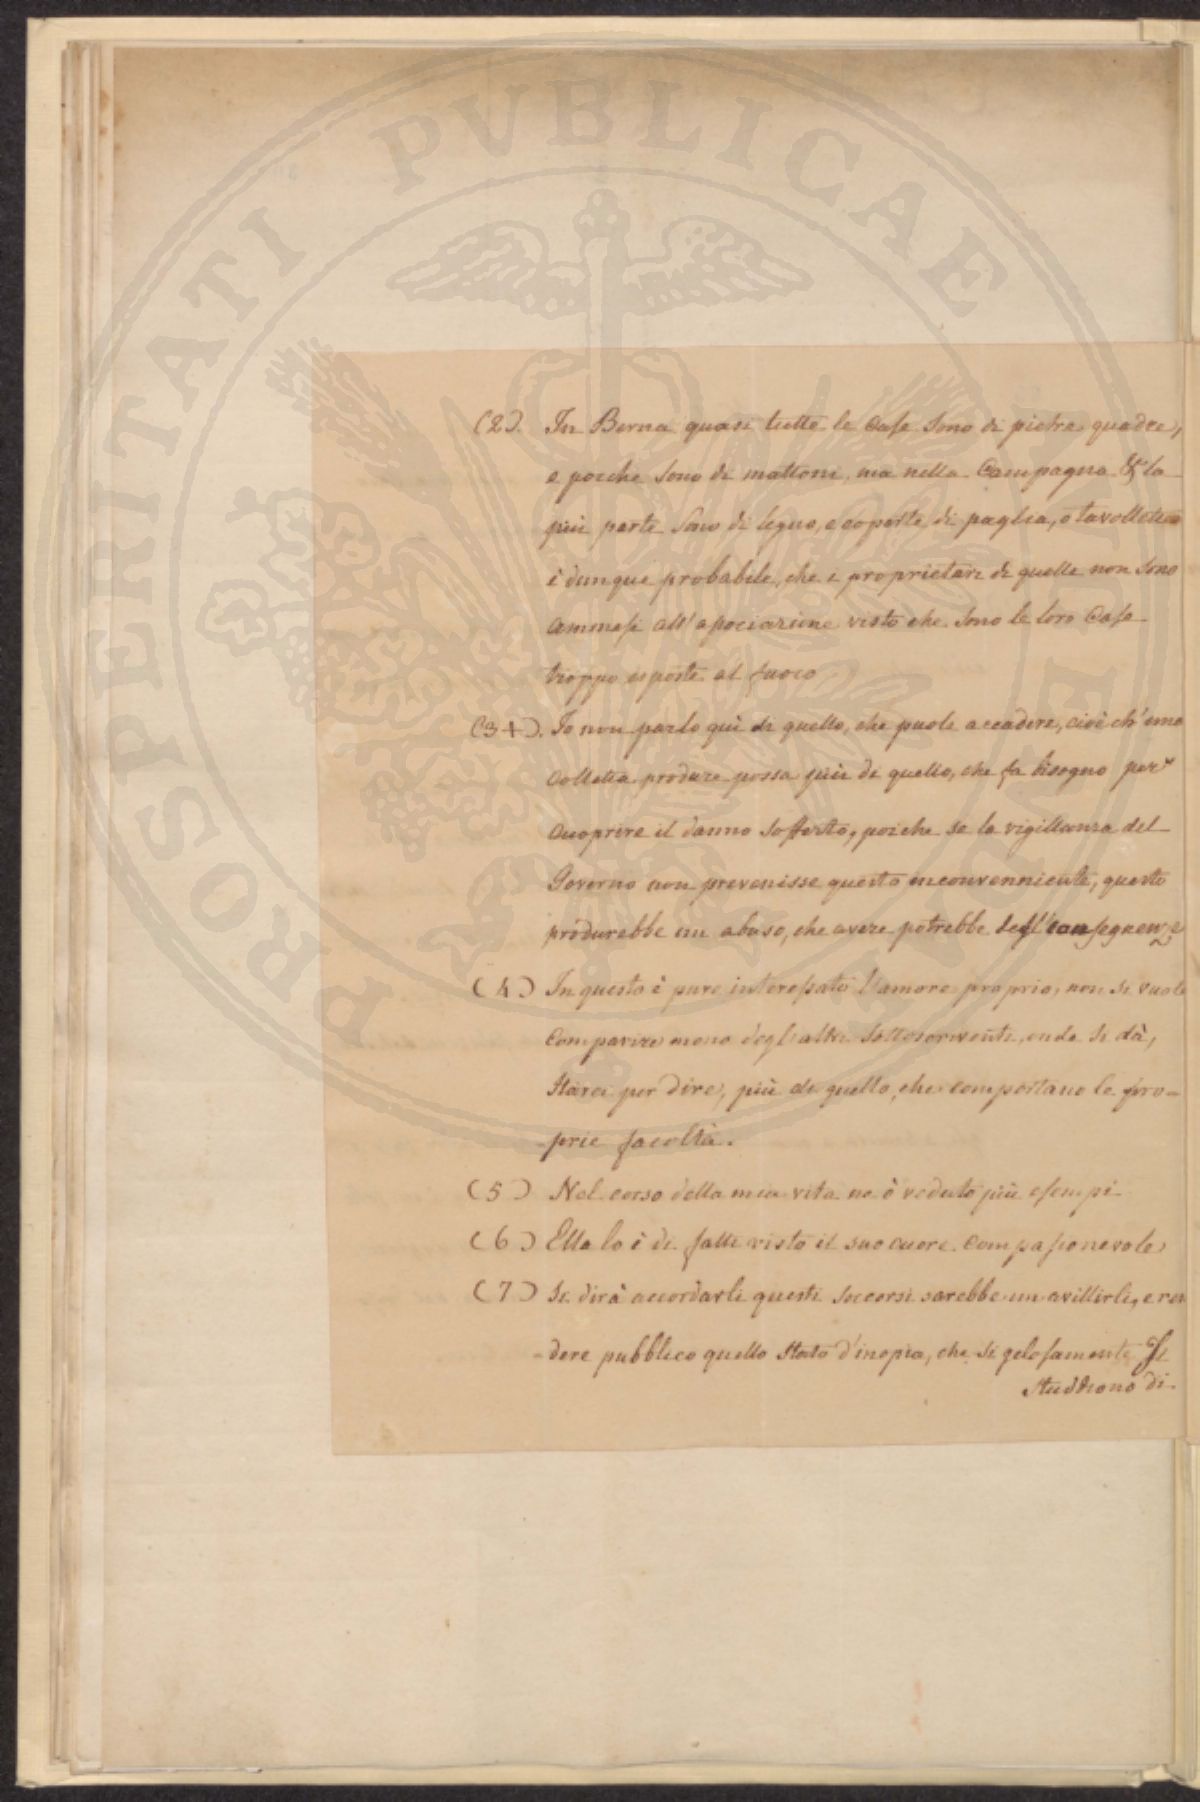 PROSPERITATI PVBLICAE
(2). In Berna quasi tutte le Case sono di pietre quadre,
e poiche sono di mattoni, ma nella Campagna la
più parte sono di legno, e coperte di paglia, o
è dunque probabile, che i proprietari di quelle non sono
ammessi all'associazione visto che sono le loro Case
troppo esposte al fuoco
(3+). Io non parlo quì di quello, che puole accadere, cioè ch'una
Colletta produre possa più di quello, che fa bisogno per
cuoprire il danno sofferto, poiche se la vigillanza del
Governo non prevenisse questo inconvenniente, questo
produrebbe un abuso, che avere potrebbe degl'consegnenze
(4) In questo è pure interessato l'amore proprio, non si vuole
Comparire meno degl'altri sottoscriventi, onde si dà,
starei per dire, più di quello, che comportano le pro-
-prie facoltà.
(5) Nel corso della mia vita ne ò veduto più esempi
(6) Ella lo è di fatti visto il suo cuore compassionevole
(7) Si dirà accordarli questi soccorsi sarebbe un avillirli, e ren
-dere pubblico quello stato d'inopia, che si gelosamente si
studiono di-